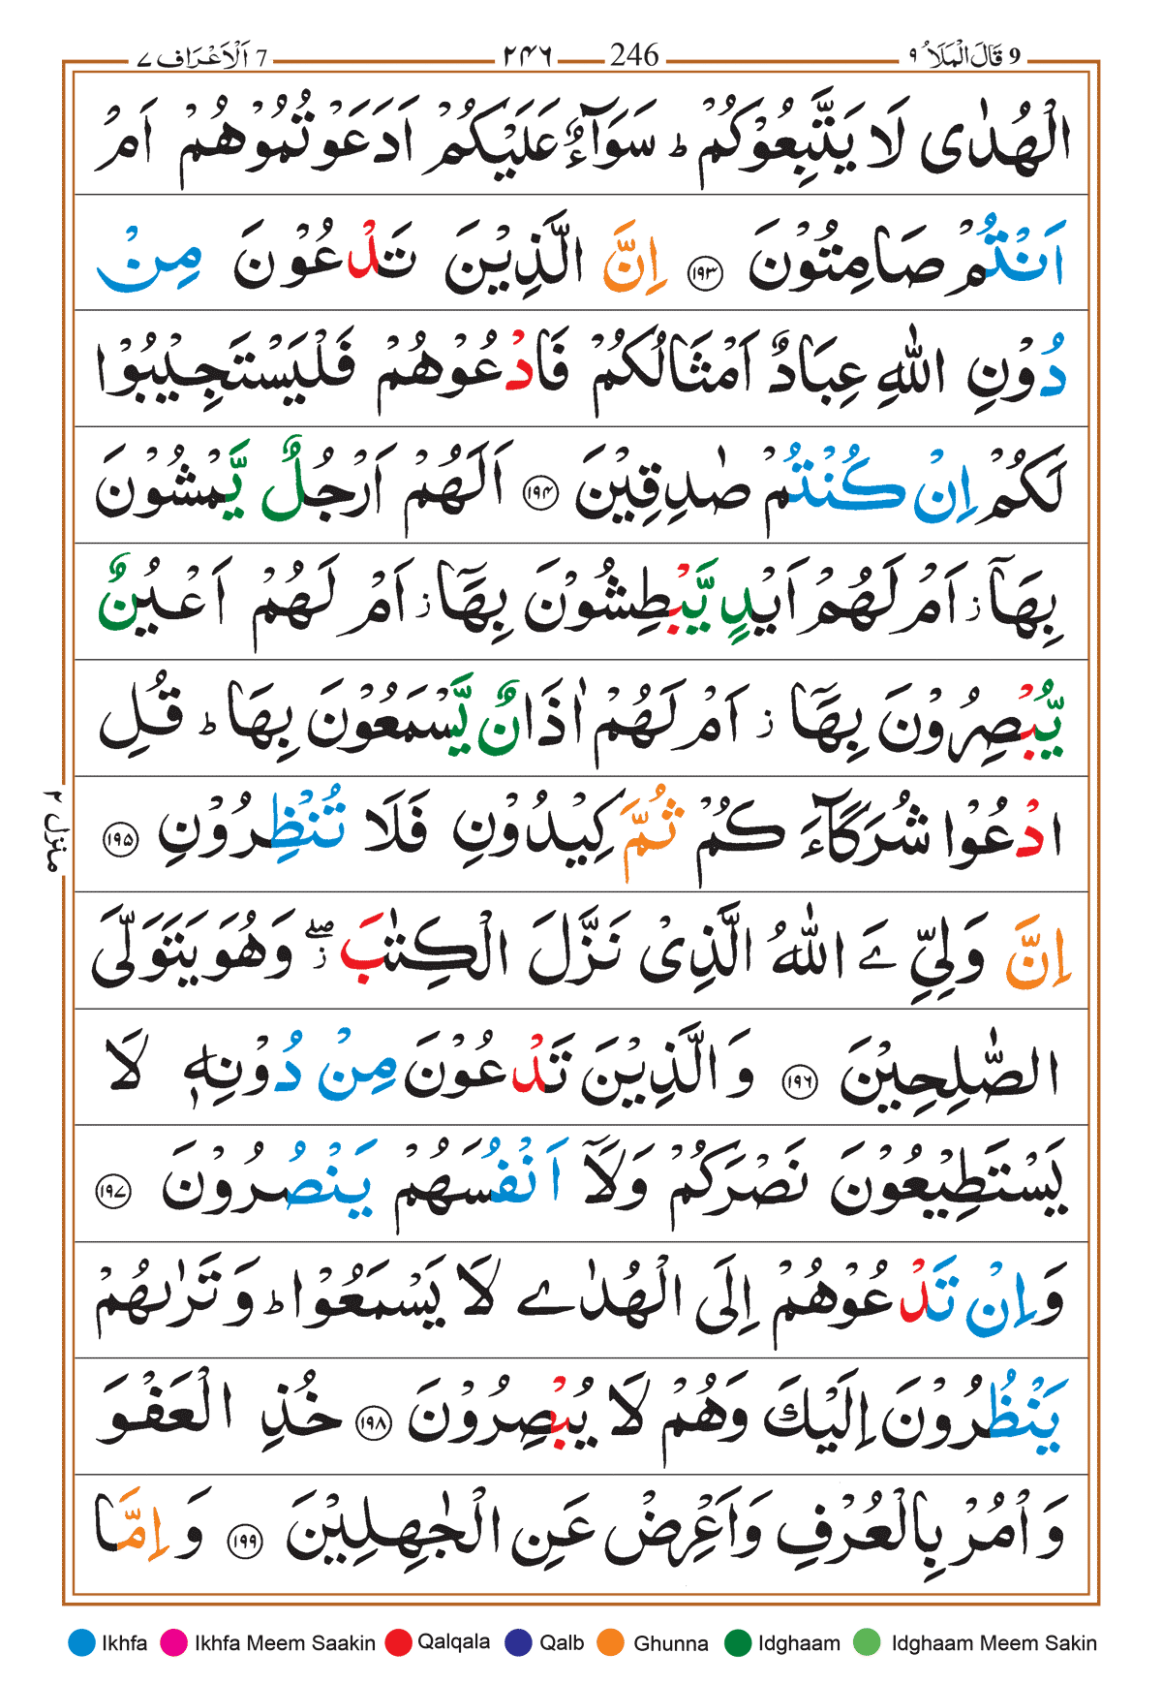 9 قَالَ الْمَلَاُ ٩ 246 ٢٤٦ 7 اَلْاَعْرَاف ٧
الْهُدٰى لَا يَتَّبِعُوْكُمْ ؕ سَوَآءٌ عَلَيْكُمْ اَدَعَوْتُمُوْهُمْ اَمْ
اَنْتُمْ صَامِتُوْنَ ۝١٩٣ اِنَّ الَّذِيْنَ تَدْعُوْنَ مِنْ
دُوْنِ اللّٰهِ عِبَادٌ اَمْثَالُكُمْ فَادْعُوْهُمْ فَلْيَسْتَجِيْبُوْا
لَكُمْ اِنْ كُنْتُمْ صٰدِقِيْنَ ۝١٩٤ اَلَهُمْ اَرْجُلٌ يَّمْشُوْنَ
بِهَاۤ ؗ اَمْ لَهُمْ اَيْدٍ يَّبْطِشُوْنَ بِهَاۤ ؗ اَمْ لَهُمْ اَعْيُنٌ
يُّبْصِرُوْنَ بِهَاۤ ؗ اَمْ لَهُمْ اٰذَانٌ يَّسْمَعُوْنَ بِهَا ؕ قُلِ
ادْعُوْا شُرَكَآءَ كُمْ ثُمَّ كِيْدُوْنِ فَلَا تُنْظِرُوْنِ ۝١٩٥
اِنَّ وَلِیِّ ےَ اللّٰهُ الَّذِىْ نَزَّلَ الْكِتٰبَ ۖؗ وَهُوَ يَتَوَلَّى
الصّٰلِحِيْنَ ۝١٩٦ وَالَّذِيْنَ تَدْعُوْنَ مِنْ دُوْنِهٖ لَا
يَسْتَطِيْعُوْنَ نَصْرَكُمْ وَلَاۤ اَنْفُسَهُمْ يَنْصُرُوْنَ ۝١٩٧
وَاِنْ تَدْعُوْهُمْ اِلَى الْهُدٰے لَا يَسْمَعُوْا ؕ وَتَرٰىهُمْ
يَنْظُرُوْنَ اِلَيْكَ وَهُمْ لَا يُبْصِرُوْنَ ۝١٩٨ خُذِ الْعَفْوَ
وَاْمُرْ بِالْعُرْفِ وَاَعْرِضْ عَنِ الْجٰهِلِيْنَ ۝١٩٩ وَاِمَّا
منزل ٢
Ikhfa Ikhfa Meem Saakin Qalqala Qalb Ghunna Idghaam Idghaam Meem Sakin